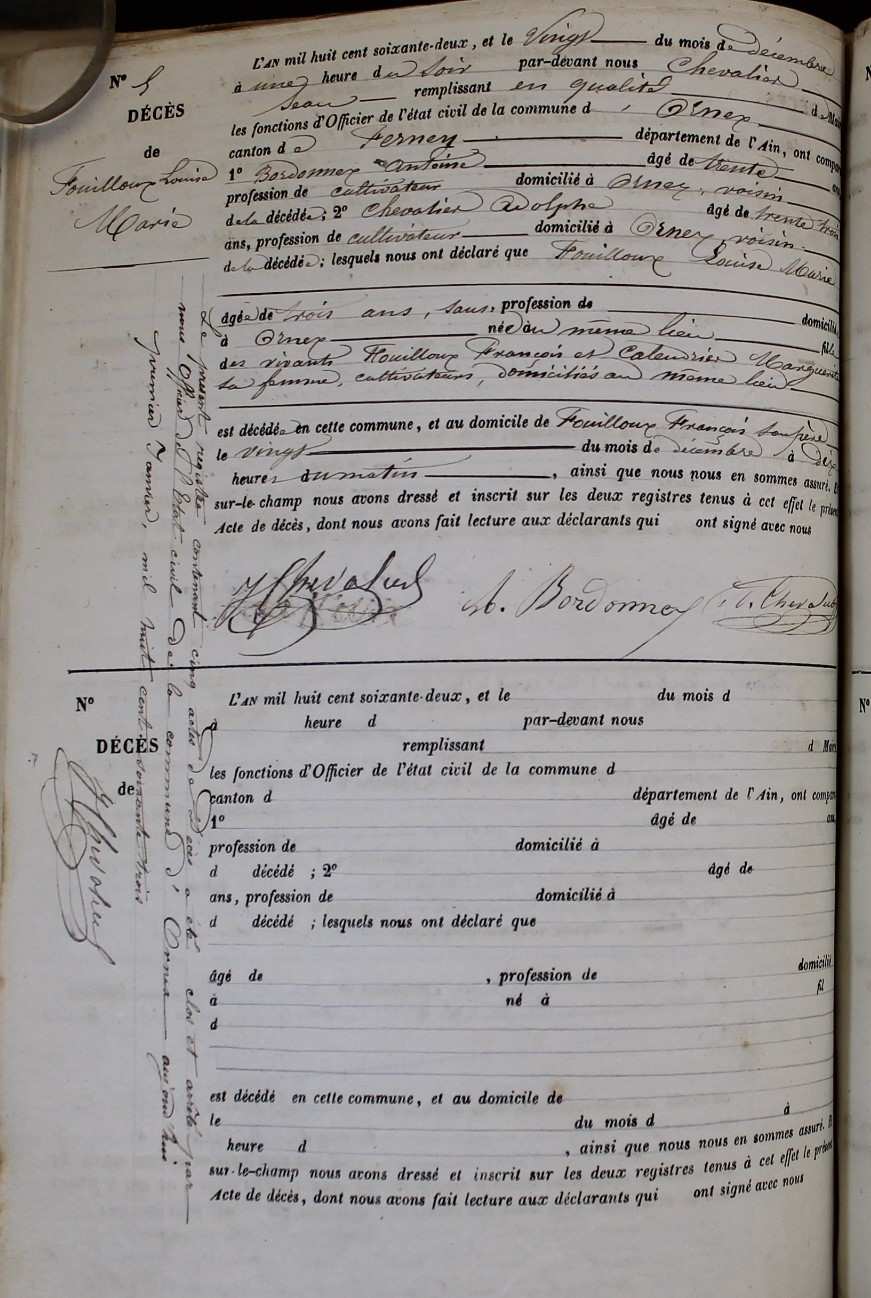 Nº 5
DÉCÈS
de
Fouilloux Louise
Marie
L'AN mil huit cent soixante-deux, et le Vingt du mois de décembre
à une heure du soir par-devant nous Chevalier
remplissant en qualité de Mai
les fonctions d'Officier de l'état civil de la commune d'Ornex
canton de Ferney département de l'Ain, ont compar
1º Bordonnex Antoine âgé de trente an
profession de cultivateur domicilié à Ornex, voisin
de la décédée; 2º Chevalier Adolphe âgé de trente trois
ans, profession de cultivateur domicilié à Ornex, voisin
de la décédée; lesquels nous ont déclaré que Fouilloux Louise Marie
âgée de trois ans, sans, profession de domicilié
à Ornex née au même lieu fille
des vivants Fouilloux François et Calendrier Marguerite
sa femme, cultivateurs, domiciliés au même lieu
est décédée en cette commune, et au domicile de Fouilloux François son père
le vingt du mois de décembre à dix
heures du matin, ainsi que nous nous en sommes assuré. Et
sur-le-champ nous avons dressé et inscrit sur les deux registres tenus à cet effet le présen
Acte de décès, dont nous avons fait lecture aux déclarants qui ont signé avec nous
Chevalier A. Bordonnex A. Chevalier
Le présent registre contenant cinq actes de Décès a été clos et arrêté par
nous Officier de l'Etat civil de la commune d'Ornex aujourd'hui
premier Janvier, mil huit cent soixante trois
Chevalier
Nº
DÉCÈS
de
L'AN mil huit cent soixante-deux, et le du mois d
à heure d par-devant nous
remplissant d Mair
les fonctions d'Officier de l'état civil de la commune d
canton d département de l'Ain, ont compar
1º âgé de an
profession de domicilié à
d décédé ; 2º âgé de
ans, profession de domicilié à
d décédé ; lesquels nous ont déclaré que
âgé de , profession de domicilié
à né à fil
d
est décédé en cette commune, et au domicile de
le du mois d à
heure d , ainsi que nous nous en sommes assuré. Et
sur-le-champ nous avons dressé et inscrit sur les deux registres tenus à cet effet le présent
Acte de décès, dont nous avons fait lecture aux déclarants qui ont signé avec nous
Nº